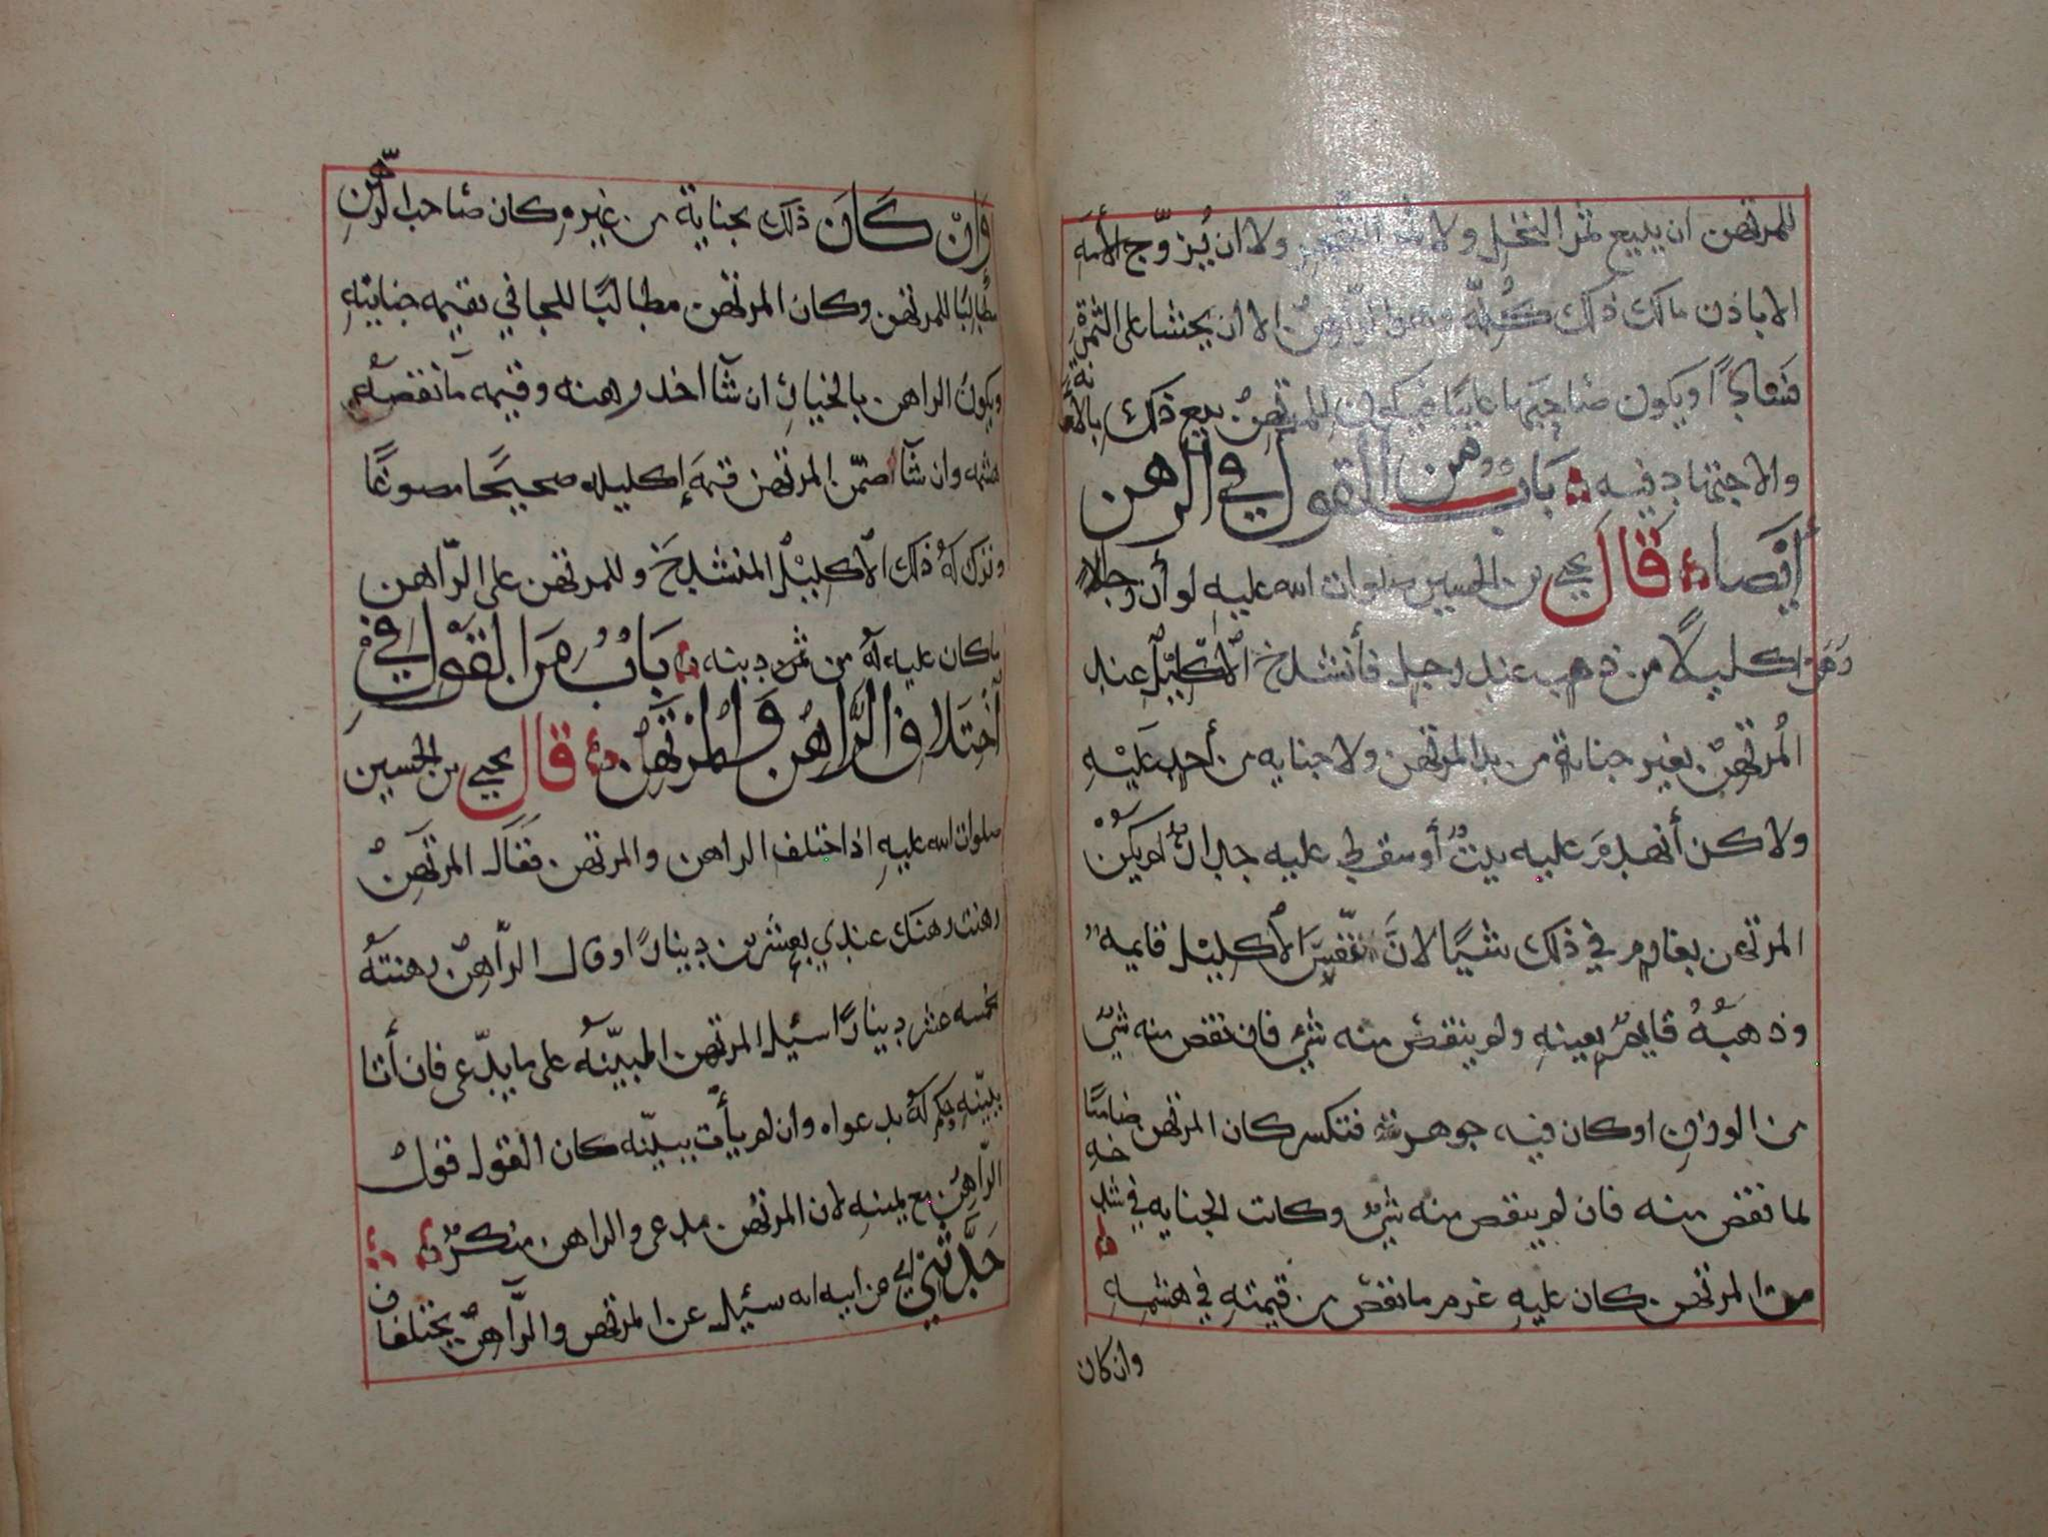 للمرتهن ان يبيع ثمر النخل ولا ثمر الشجر ولا ان يُزوّج الأمَه
الا باذن مالك ذلك كُلّه الراهن الا ان يخشا على الثمرةِ
فسادًا ويكون صاحبها غايبًا فيكون للمرتهن بيع ذلك بالأمانة
والاجتهاد فيه بَاب ومن القول في الرهن
أيضًا قال يحيى بن الحسين صلوات الله عليه لو أن رجلًا
رهن اكليلًا من ذهب عند رجل فأنشدخ الاكليل عند
المُرتهن بغير جنايةٍ من يد المرتهن ولا جنايه من أحد عَلَيْهِ
ولاكن أنهدمَ عليه بيتٌ أو سقط عليه جدارٌ لم يكن
المرتهن بغارمٍ في ذلك شيًا لانَّ نفس الاكليل قايمه
وذهبُهُ قايمٌ بعينه ولم ينقص منه شيٌ فان نقص منه شيٌ
من الوزن او كان فيه جوهر فتكسر كان المرتهن ضامنًا
لما نقص منه فان لم ينقص منه شيٌ وكانت الجنايه في شدخه
من المرتهن كان عليه غرم ما نقص من قيمتهِ في هشمه
وان كان
وَانْ كَانَ ذلك بجنايةٍ من غيره كان صَاحب الرّهن
مطالبًا للمرتهن وكان المرتهن مطالبًا للجاني بقيمه جنايتهِ
ويكونُ الراهن بالخيار ان شآ اخذ رهنه وقيمه ما نقصه
هشمه وان شآ ضمّن المرتهن قيمَة إكليله صحيحًا مصوغًا
وترك لَهُ ذلك الاكليل المنشدخ وللمرتهن على الرّاهن
ما كان عليه لَهُ من ثمن دينه بَابُ مِنَ القول في
اختلاف الرَّاهن وَالمُرْتَهِن قال يحيى بن الحسين
صلوات الله عليه اذا اختلف الراهن والمرتهن فقال المرتهن
رهنت رهنك عندي بعشرين دينارًا وقال الرّاهن رهنته
بخمسه عشر دينارًا سئيل المرتهن البيّنه على ما يدّعى فان أتا
ببيّنه حكم لَهُ بدعواه وان لم يأت ببيّنه كان القول قول
الرّاهن مع يمينه لان المرتهن مدعى والراهن منكرٌ
حَدَّثني ابي عن ابيه انه سئيل عن المرتهن والرّاهن يختلفان